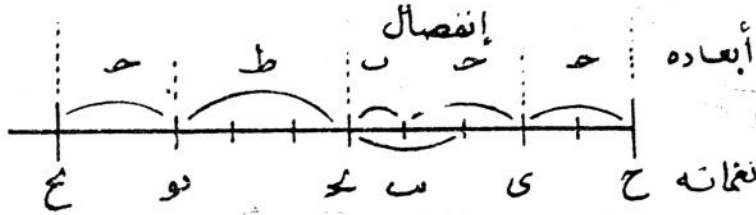 إنفصال
أبعاده حـ حـ ب ط حـ
نغماته ح ى يب يحـ يو يح